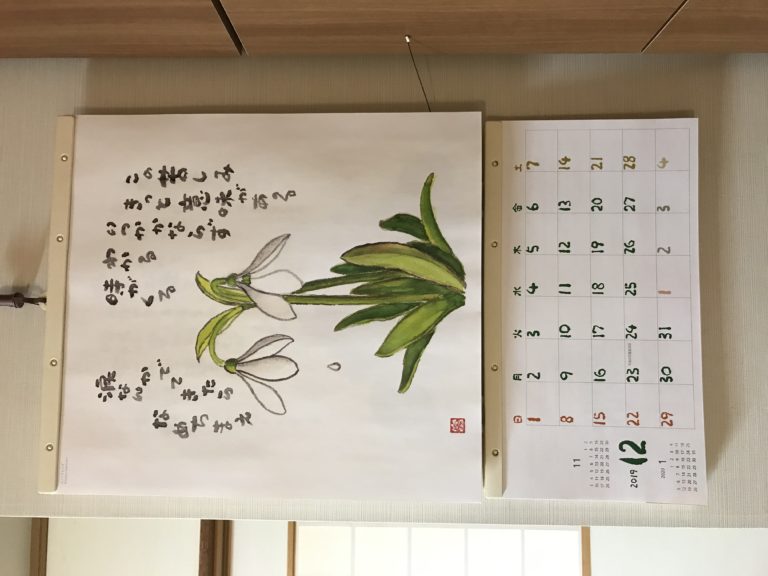 この苦しみ
きっと意味がある
いつかかならず
わかる
時がくる
涙なんかでてきたら
なめちまえ
11
2019
12
2020 1
日 月 火 水 木 金 土
1 2 3 4 5 6 7
8 9 10 11 12 13 14
15 16 17 18 19 20 21
22 23 24 25 26 27 28
29 30 31 1 2 3 4